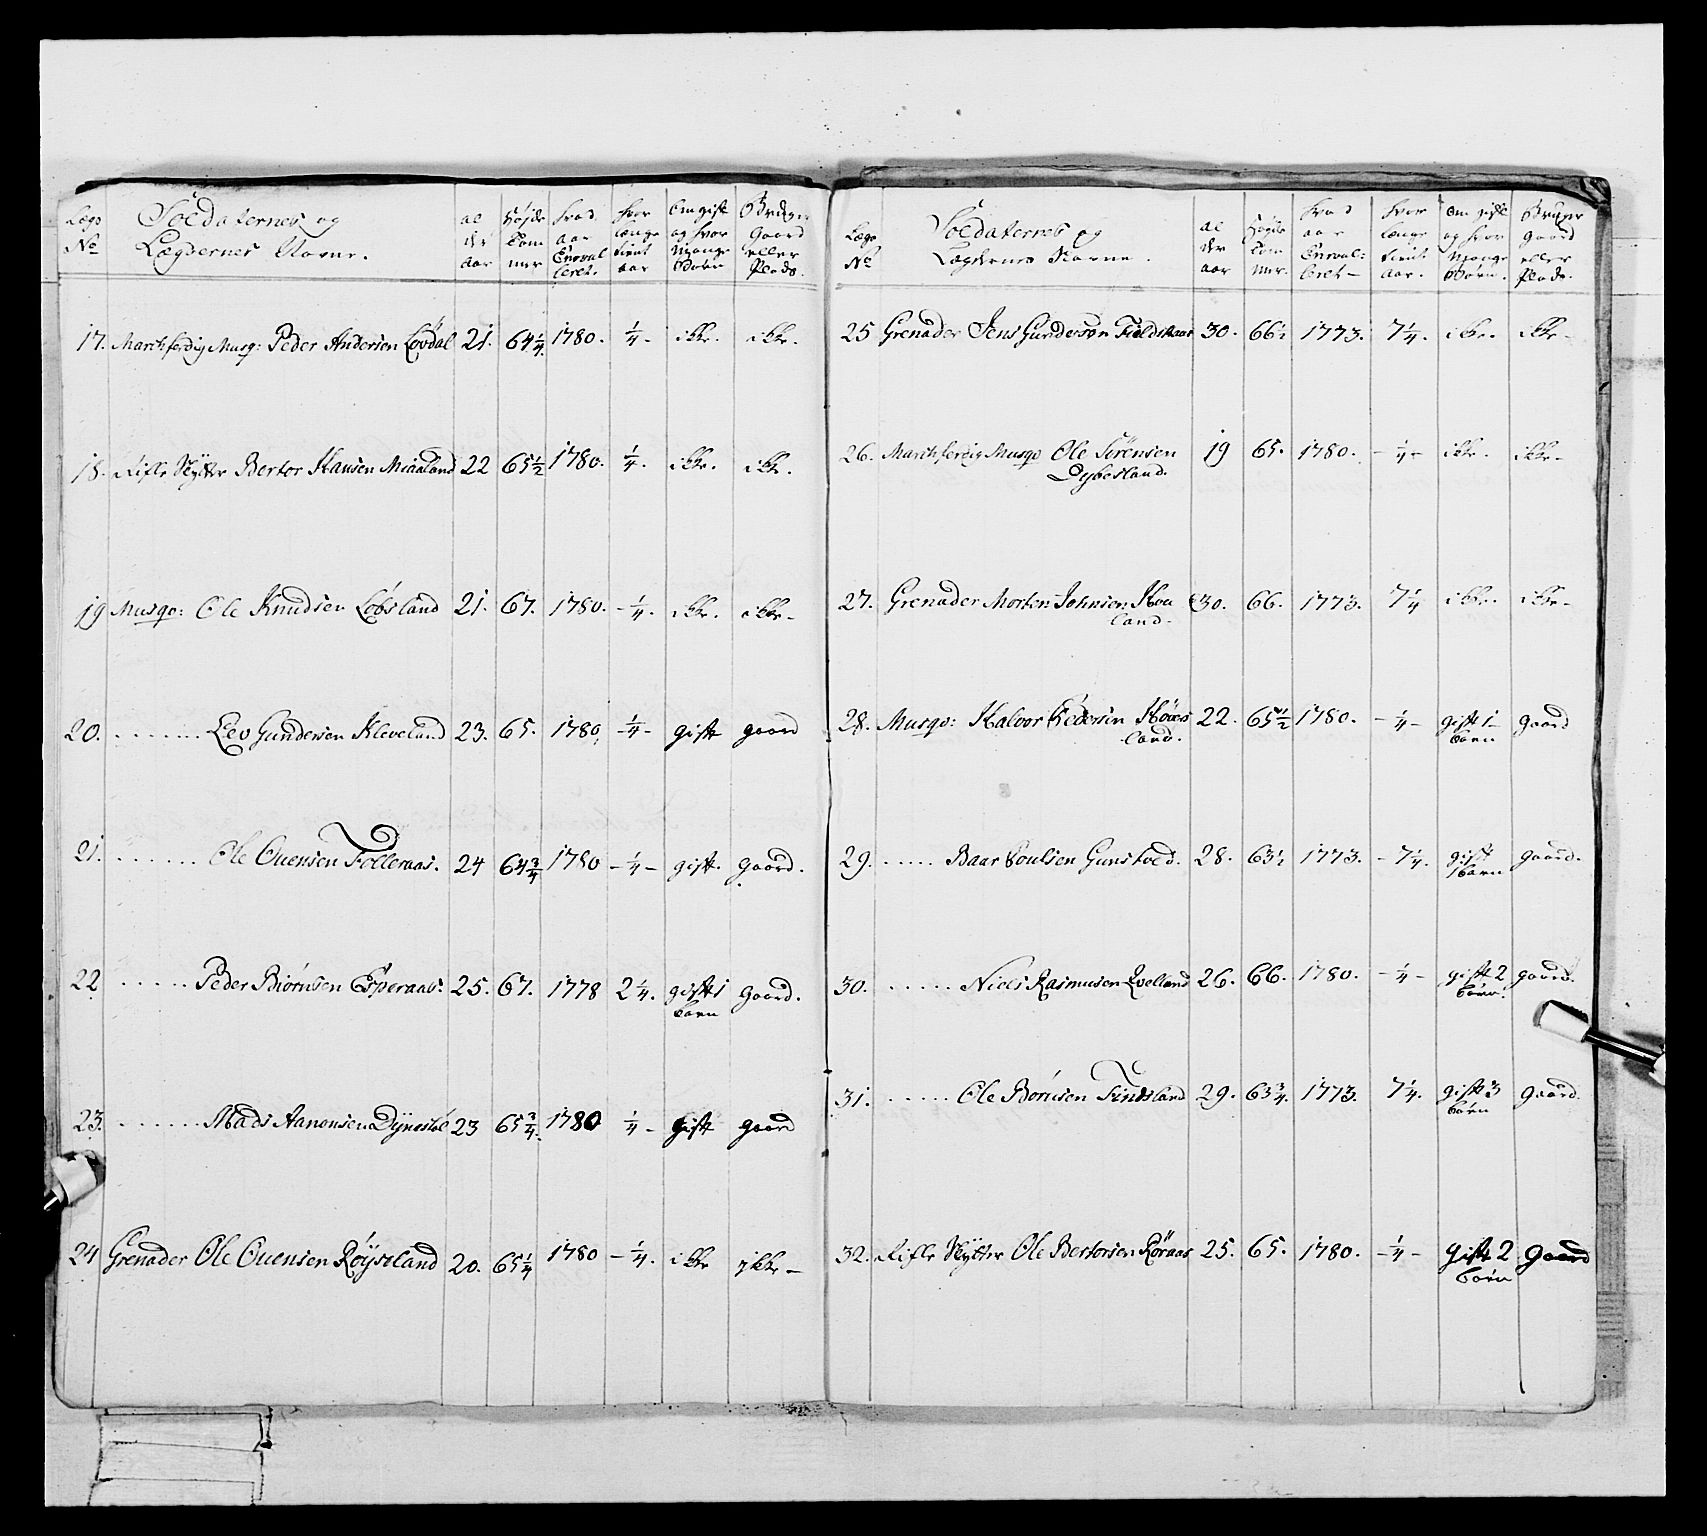 Lægs No Soldaternes og Lægdernes Navne. al der aar Høyde Tom mer hvad aar Enroul leret. hvor længe tient aar Om gift og hvor mange Børn Bruger gaard eller Plads.
17. Marchferdig Musq: Peder Andersen Løvdal 21. 64 1/4 1780. 1/4. ikke. ikke.
18. Rifle Skytter Bertor Hansen Miaaland 22 65 1/2 1780. 1/4. ikke. ikke.
19 Musqo: Ole Knudsen Løbsland 21. 67. 1780. - 1/4. ikke. ikke.
20. . . . . . . . Lev Gundersen Kleveland 23. 65. 1780. - 1/4 - gift gaard
21. . . . . . . Ole Ouensen Følleraas. 24 64 3/4 1780 - 1/4 - gift. gaard.
22 . . . . . . Peder Biørnsen Esperaas. 25. 67. 1778 2 1/4. gift 1 gaard.
barn
23. . . . . . . Mads Aanensen Dynestøl 23 65 3/4. 1780 1/4 - gift gaard
24 Grenader Ole Ouensen Røyseland 20. 65 1/4 1780 - 1/4. ikke ikke -
Lægs No Soldaternes og Lægdernes Navne. al der aar Høyde Tom mer. hvad aar Enroul: leret - hvor længe tient aar. Om gift og hvor mange Børn. Bruger gaard eller Plads.
25 Grenader Jens Gunderson Fieldskaar 30. 66 1/2 1773. 7 1/4. ikke. ikke -
26. Marchferdig Musqo Ole Sørensen 19 65. 1780. - 1/4 - ikke. ikke -
Dybesland.
27. Grenader Morten Johnsen Hoe 30. 66. 1773. 7 1/4 ikke. ikke -
land.
28. Musqo: Halvor Pedersen Høies 22. 65 1/2 1780. - 1/4 - gift 1 gaard
land. barn
29. . . . . . Baar Poulsen Gunstved. 28. 63 1/2 1773. - 7 1/4. gift gaard.
1 barn
30. . . . . . Niels Rasmusen Qvelland 26. 66. 1780. - 1/4 - gift 2 gaard.
børn.
31. . . . . . Ole Børnsen Findsland 29. 63 3/4. 1773. 7 1/4. gift 3 gaard.
børn
32. Rifle Skytter Ole Bertorsen Røraas 25. 65. 1780. - 1/4 - gift 2 gaard
børn